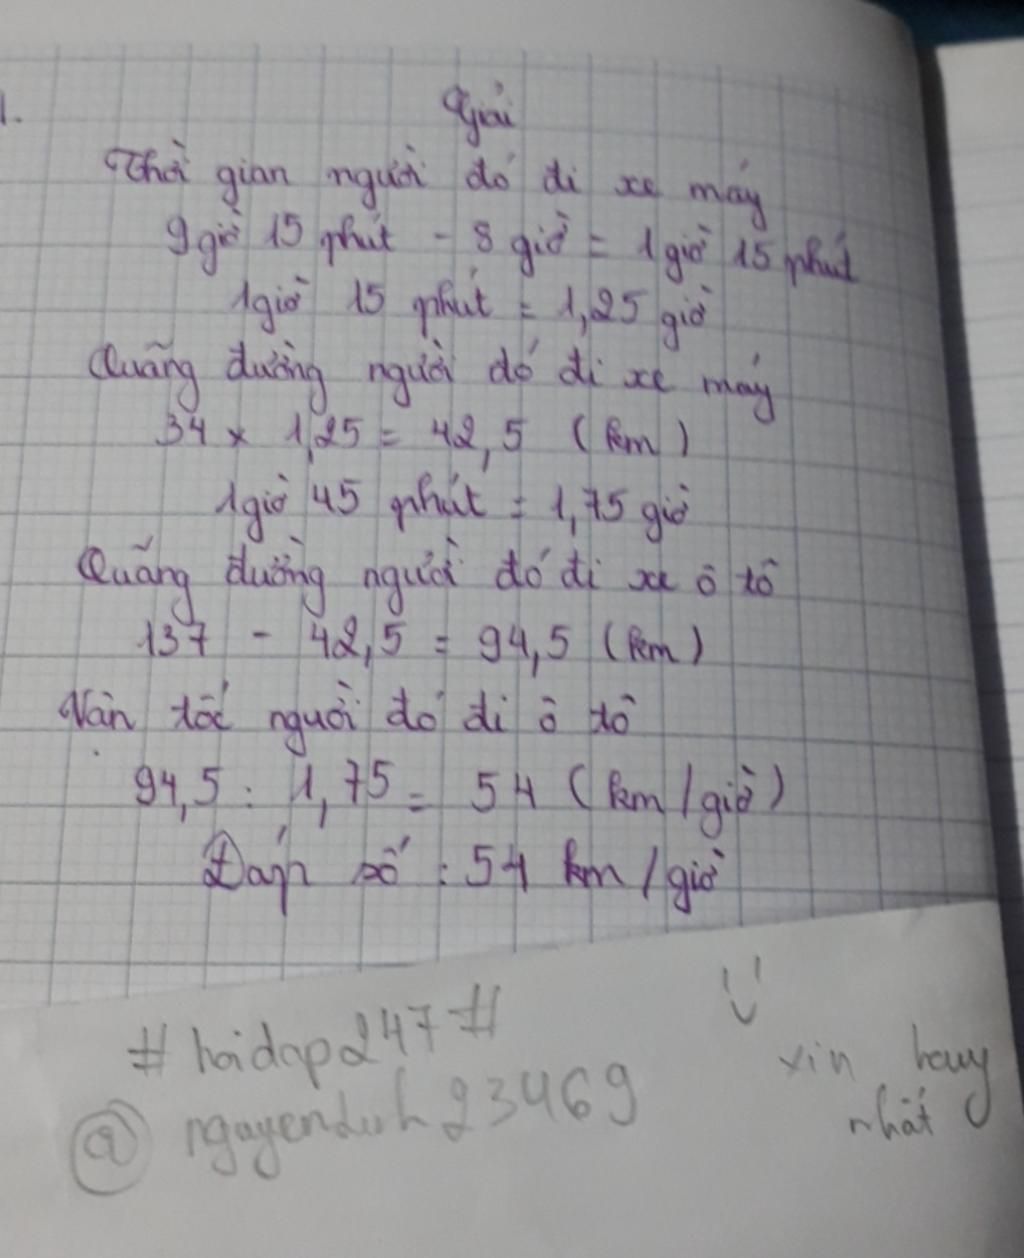 1.
Giải
Thời gian người đó đi xe máy
9 giờ 15 phút - 8 giờ = 1 giờ 15 phút
1 giờ 15 phút = 1,25 giờ
Quãng đường người đó đi xe máy
34 x 1,25 = 42,5 (km)
1 giờ 45 phút = 1,75 giờ
Quãng đường người đó đi xe ô tô
137 - 42,5 = 94,5 (km)
Vận tốc người đó đi ô tô
94,5 : 1,75 = 54 (km/giờ)
Đáp số : 54 km/giờ
#hoidap247#
xin hay
nhất